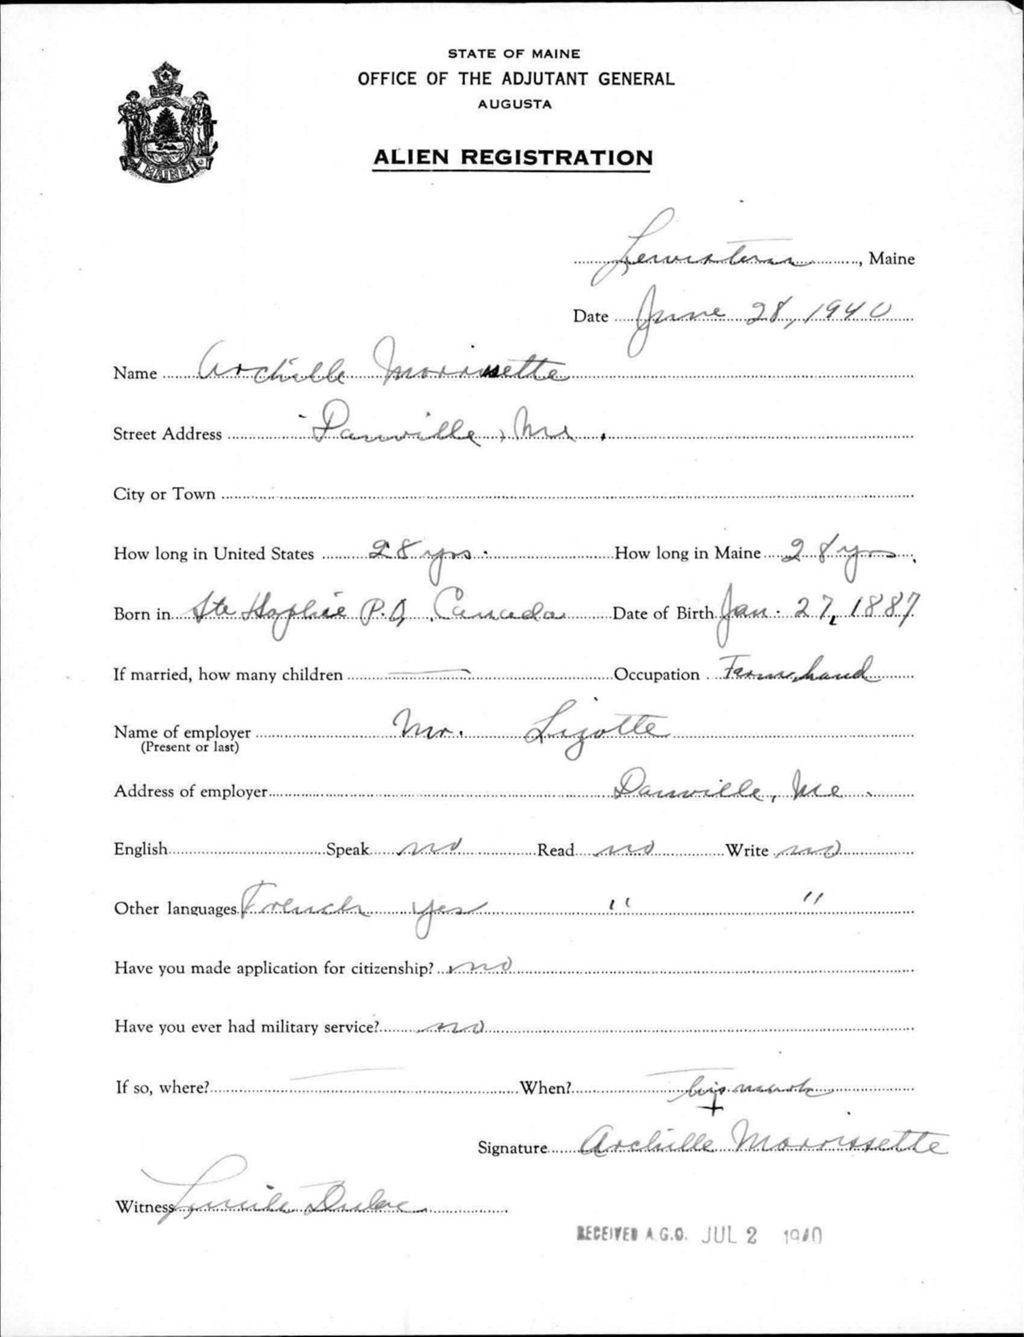 STATE OF MAINE
OFFICE OF THE ADJUTANT GENERAL
AUGUSTA
ALIEN REGISTRATION
MAINE
Lewiston, Maine
Date June 28, 1940
Name Archille Morrissette
Street Address Danville, Me.
City or Town
How long in United States 28 yrs. How long in Maine 28 yrs.
Born in Ste Sophie P.Q. Canada Date of Birth Jan. 27, 1887
If married, how many children — Occupation Farm hand
Name of employer Mr. Lizotte
(Present or last)
Address of employer Danville, Me.
English Speak no Read no Write no
Other languages French yes " "
Have you made application for citizenship? no
Have you ever had military service? no
If so, where? — When? —
his mark
+
Signature Archille Morrissette
Witness Lucile Dube
RECEIVED A.G.O. JUL 2 1940